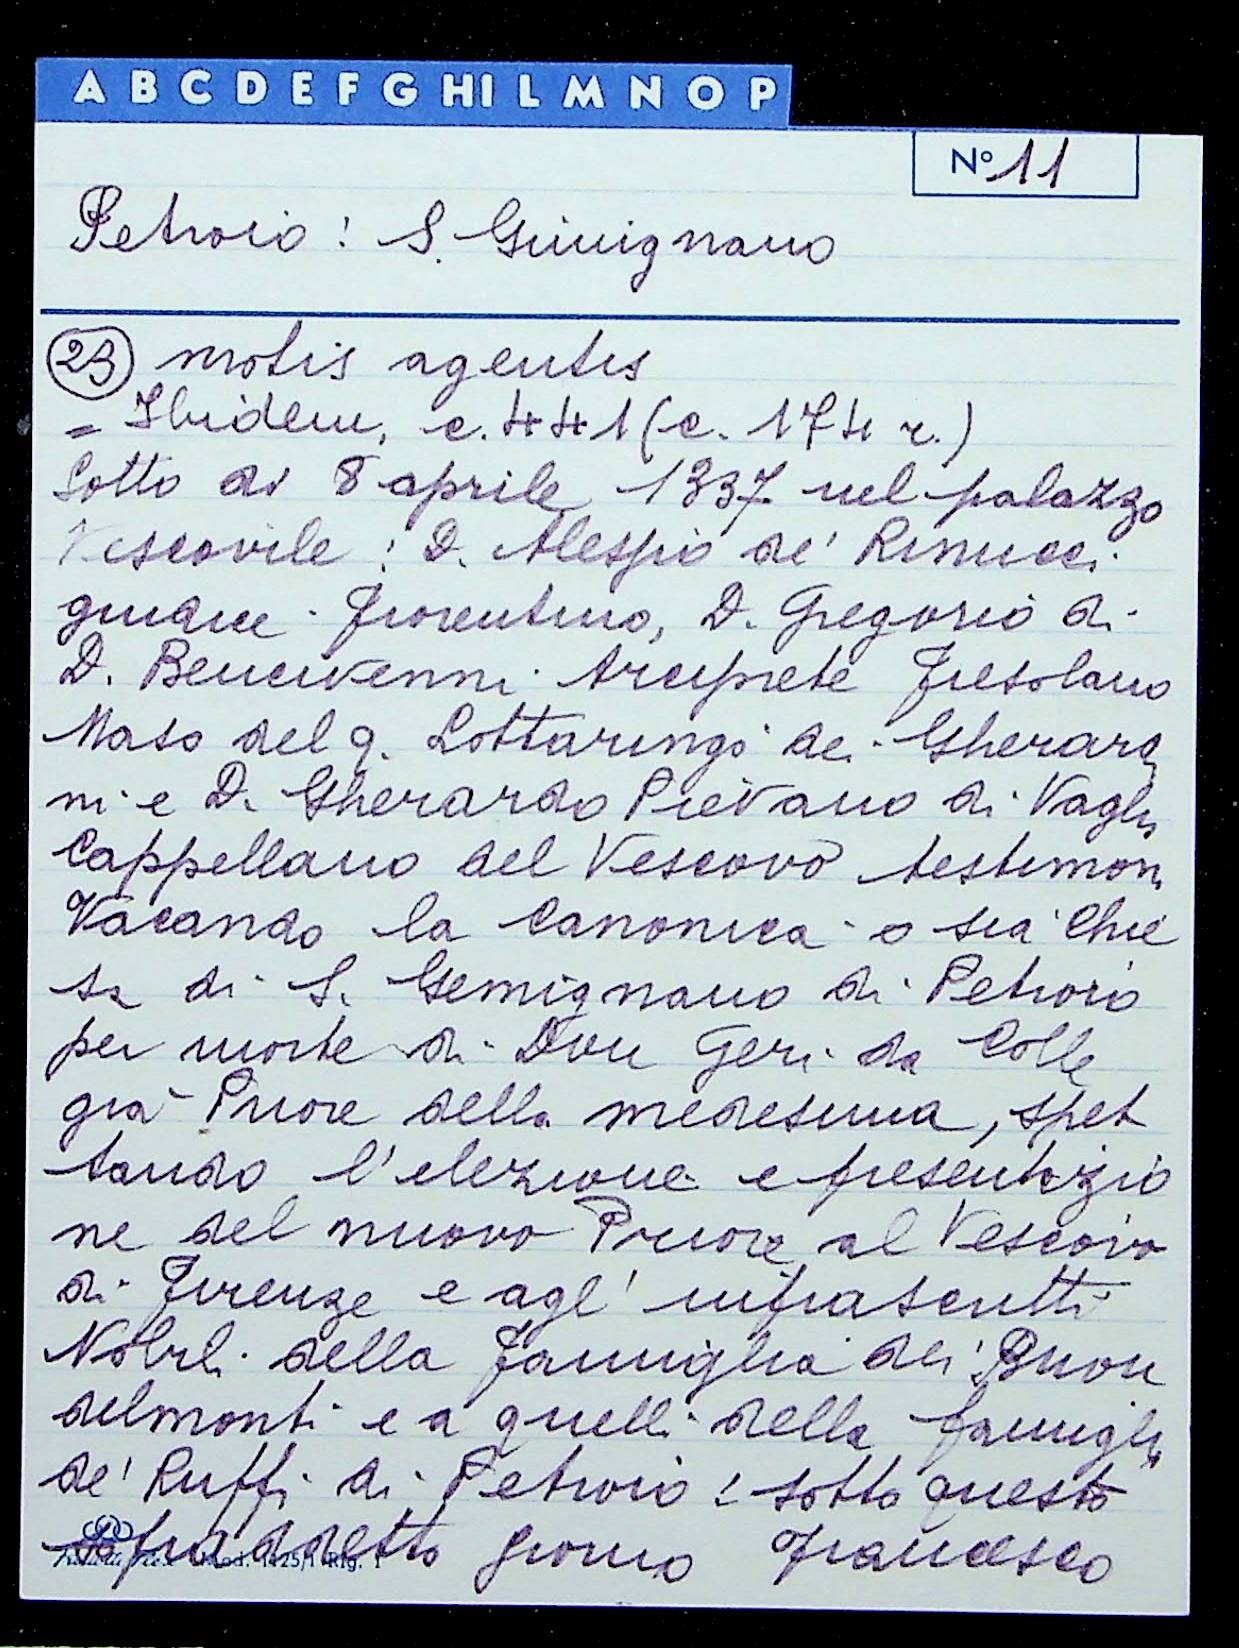 A B C D E F G HI L M N O P
N° 11
Petroio : S. Gimignano
23 motis agentis
= Ibidem, c. 441 (c. 174 r.)
Sotto dì 8 aprile 1337 nel palazzo
Vescovile : D. Alessio de' Rinucci
giudice fiorentino, D. Gregorio di
D. Bencivenni Arciprete Fiesolano
Maso del q. Lottaringo dei Gherardi
ni e D. Gherardo Pievano di Vagli
Cappellano del Vescovo testimoni
Vacando la Canonica o sia Chie
sa di S. Gemignano di Petroio
per morte di Don Geri da Colle
già Priore della medesima, spet
tando l'elezione e presentazio
ne del nuovo Priore al Vescovo
di Firenze e agl' infrascritti
Nobili della famiglia dei Buon
delmonti e a quelli della famiglia
de' Ruffi di Petroio : sotto questo
sopraddetto giorno Francesco
Mod. 1425/1 Rig. 1